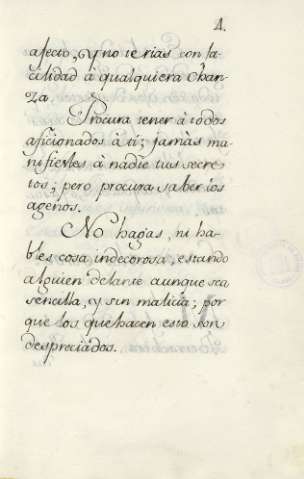 4.
afecto, y no te rias con fa-
cilidad à qualquiera chan-
za.
Procura tener à todos
aficionados à ti; jamàs ma
nifiestes à nadie tus secre
tos; pero procura saber los
agenos.
No hagas, ni ha-
bles cosa indecorosa, estando
alguien delante aunque sea
sencilla, y sin malicia; por
que los que hacen esto son
despreciados.